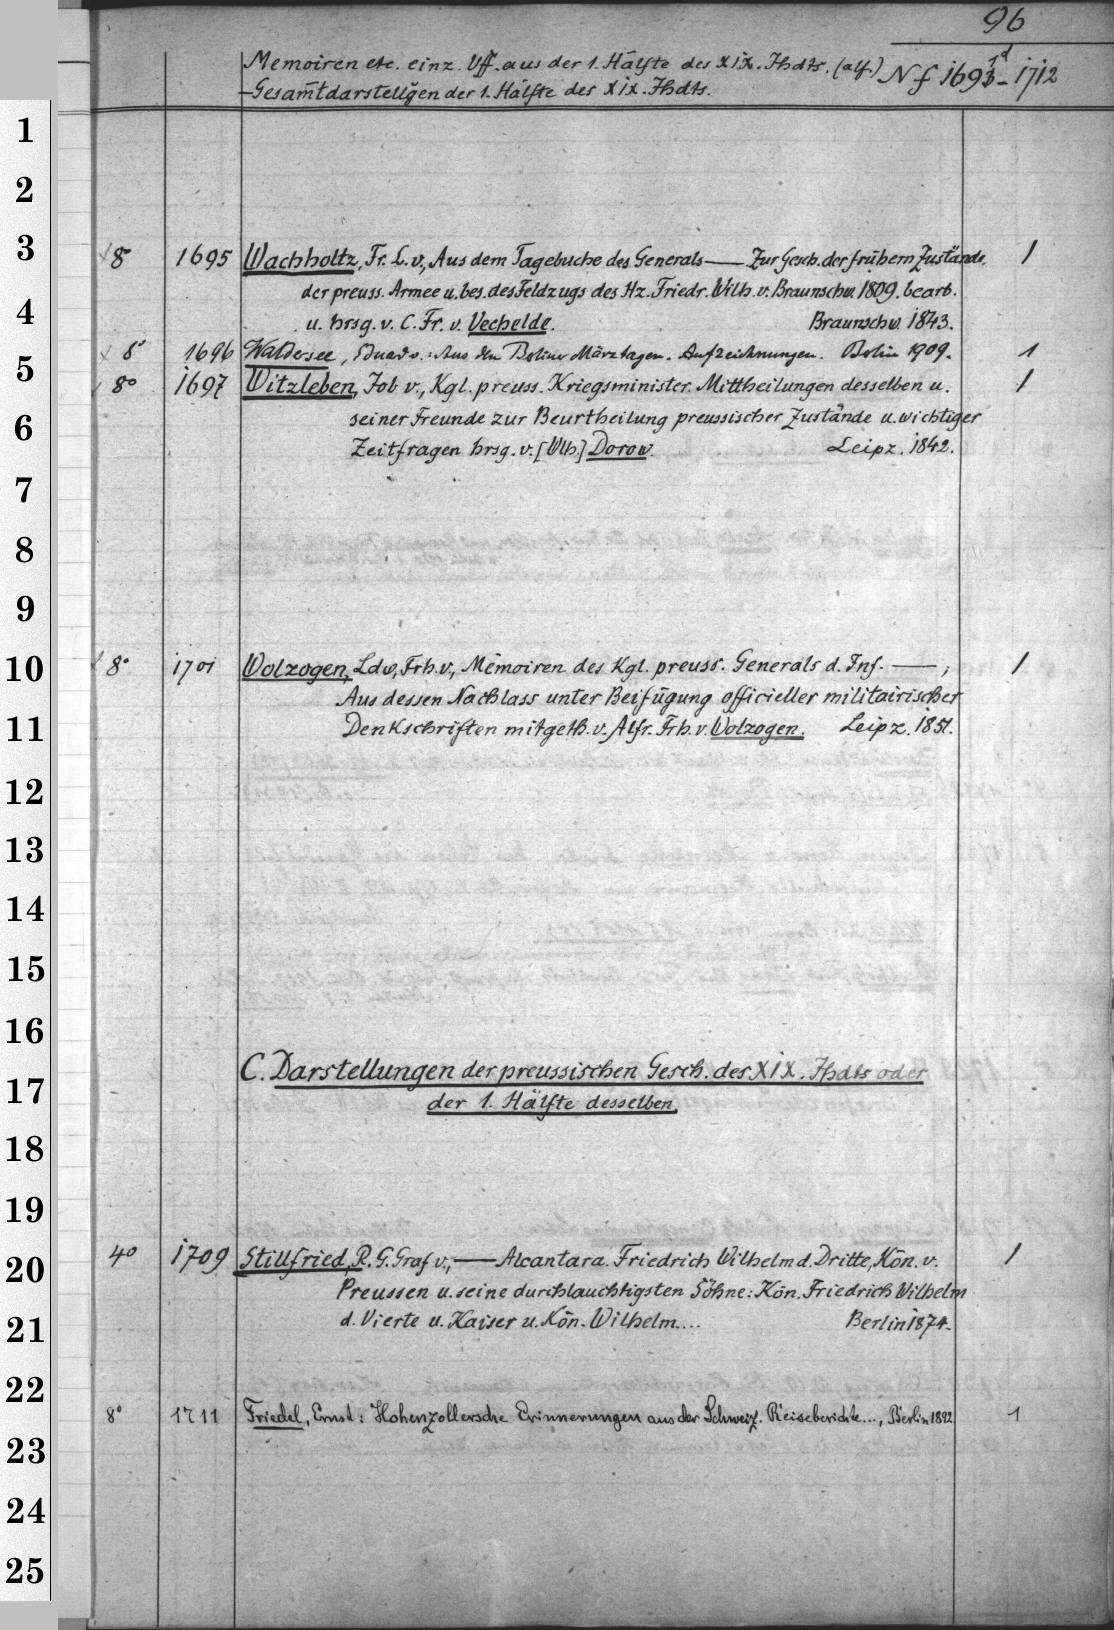 96
Memoiren etc. einz. Vff. aus der 1. Hälfte des XIX. Jhdts. (alf.) Nf 1693d - 1712
– Gesam̄tdarstellg̅en der 1. Hälfte des XIX. Jhdts.
1
2
3 8° 1695 Wachholtz, Fr. L. v., Aus dem Tagebuche des Generals —— Zur Gesch. der frühern Zustände 1
der preuss. Armee u. bes. des Feldzugs des Hz. Friedr. Wilh. v. Braunschw. 1809. bearb.
4 u. hrsg. v. C. Fr. v. Vechelde. Braunschw. 1843.
8° 1696 Waldersee, Eduard v.: Aus den Berliner Märztagen. Aufzeichnungen. Berlin 1909. 1
5 8° 1697 Witzleben, Job v., Kgl. preuss. Kriegsminister. Mittheilungen desselben u. 1
6 seiner Freunde zur Beurtheilung preussischer Zustände u. wichtiger
Zeitfragen hrsg. v. [Wlh.] Dorow. Leipz. 1842.
7
8
9
10 8° 1701 Wolzogen, Ldw, Frh. v., Memoiren des Kgl. preuss. Generals d. Inf. ——; 1
Aus dessen Nachlass unter Beifügung officieller militairischer
11 Denkschriften mitgeth. v. Alfr. Frh. v. Wolzogen. Leipz. 1851.
12
13
14
15
16
C. Darstellungen der preussischen Gesch. des XIX. Jhdts oder
17 der 1. Hälfte desselben.
18
19
20 4° 1709 Stillfried, R. G. Graf v., —— Alcantara. Friedrich Wilhelm d. Dritte, Kön. v. 1
Preussen u. seine durchlauchtigsten Söhne: Kön. Friedrich Wilhelm
21 d. Vierte u. Kaiser u. Kön. Wilhelm.... Berlin 1874.
22
8° 1711 Friedel, Ernst: Hohenzollersche Erinnerungen aus der Schweiz. Reiseberichte..., Berlin 1892 1
23
24
25